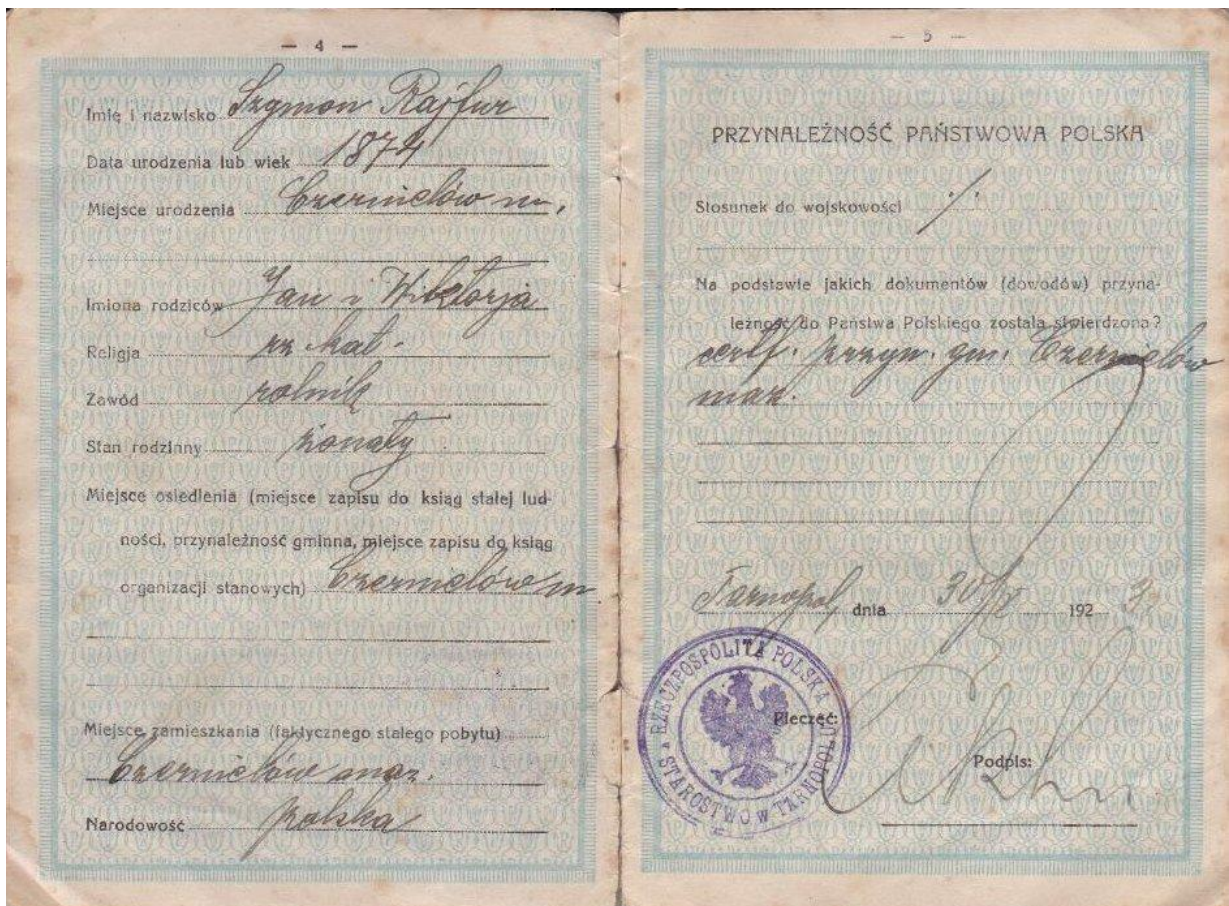 — 4 —
Imię i nazwisko Szymon Rajfur
Data urodzenia lub wiek 1874
Miejsce urodzenia Czernielów m.
Imiona rodziców Jan i Wiktorja
Religja rz. kat.
Zawód rolnik
Stan rodzinny żonaty
Miejsce osiedlenia (miejsce zapisu do ksiąg stałej lud-
ności, przynależność gminna, miejsce zapisu do ksiąg
organizacji stanowych) Czernielów m
Miejsce zamieszkania (faktycznego stałego pobytu)
Czernielów maz.
Narodowość polska
— 5 —
PRZYNALEŻNOŚĆ PAŃSTWOWA POLSKA
Stosunek do wojskowości ./.
Na podstawie jakich dokumentów (dowodów) przyna-
leżność do Państwa Polskiego została stwierdzona?
certf. przyn. gm. Czernielów
maz.
Tarnopol, dnia 192
RZECZPOSPOLITA POLSKA
STAROSTWO W TARNOPOLU
Pieczęć:
Podpis: